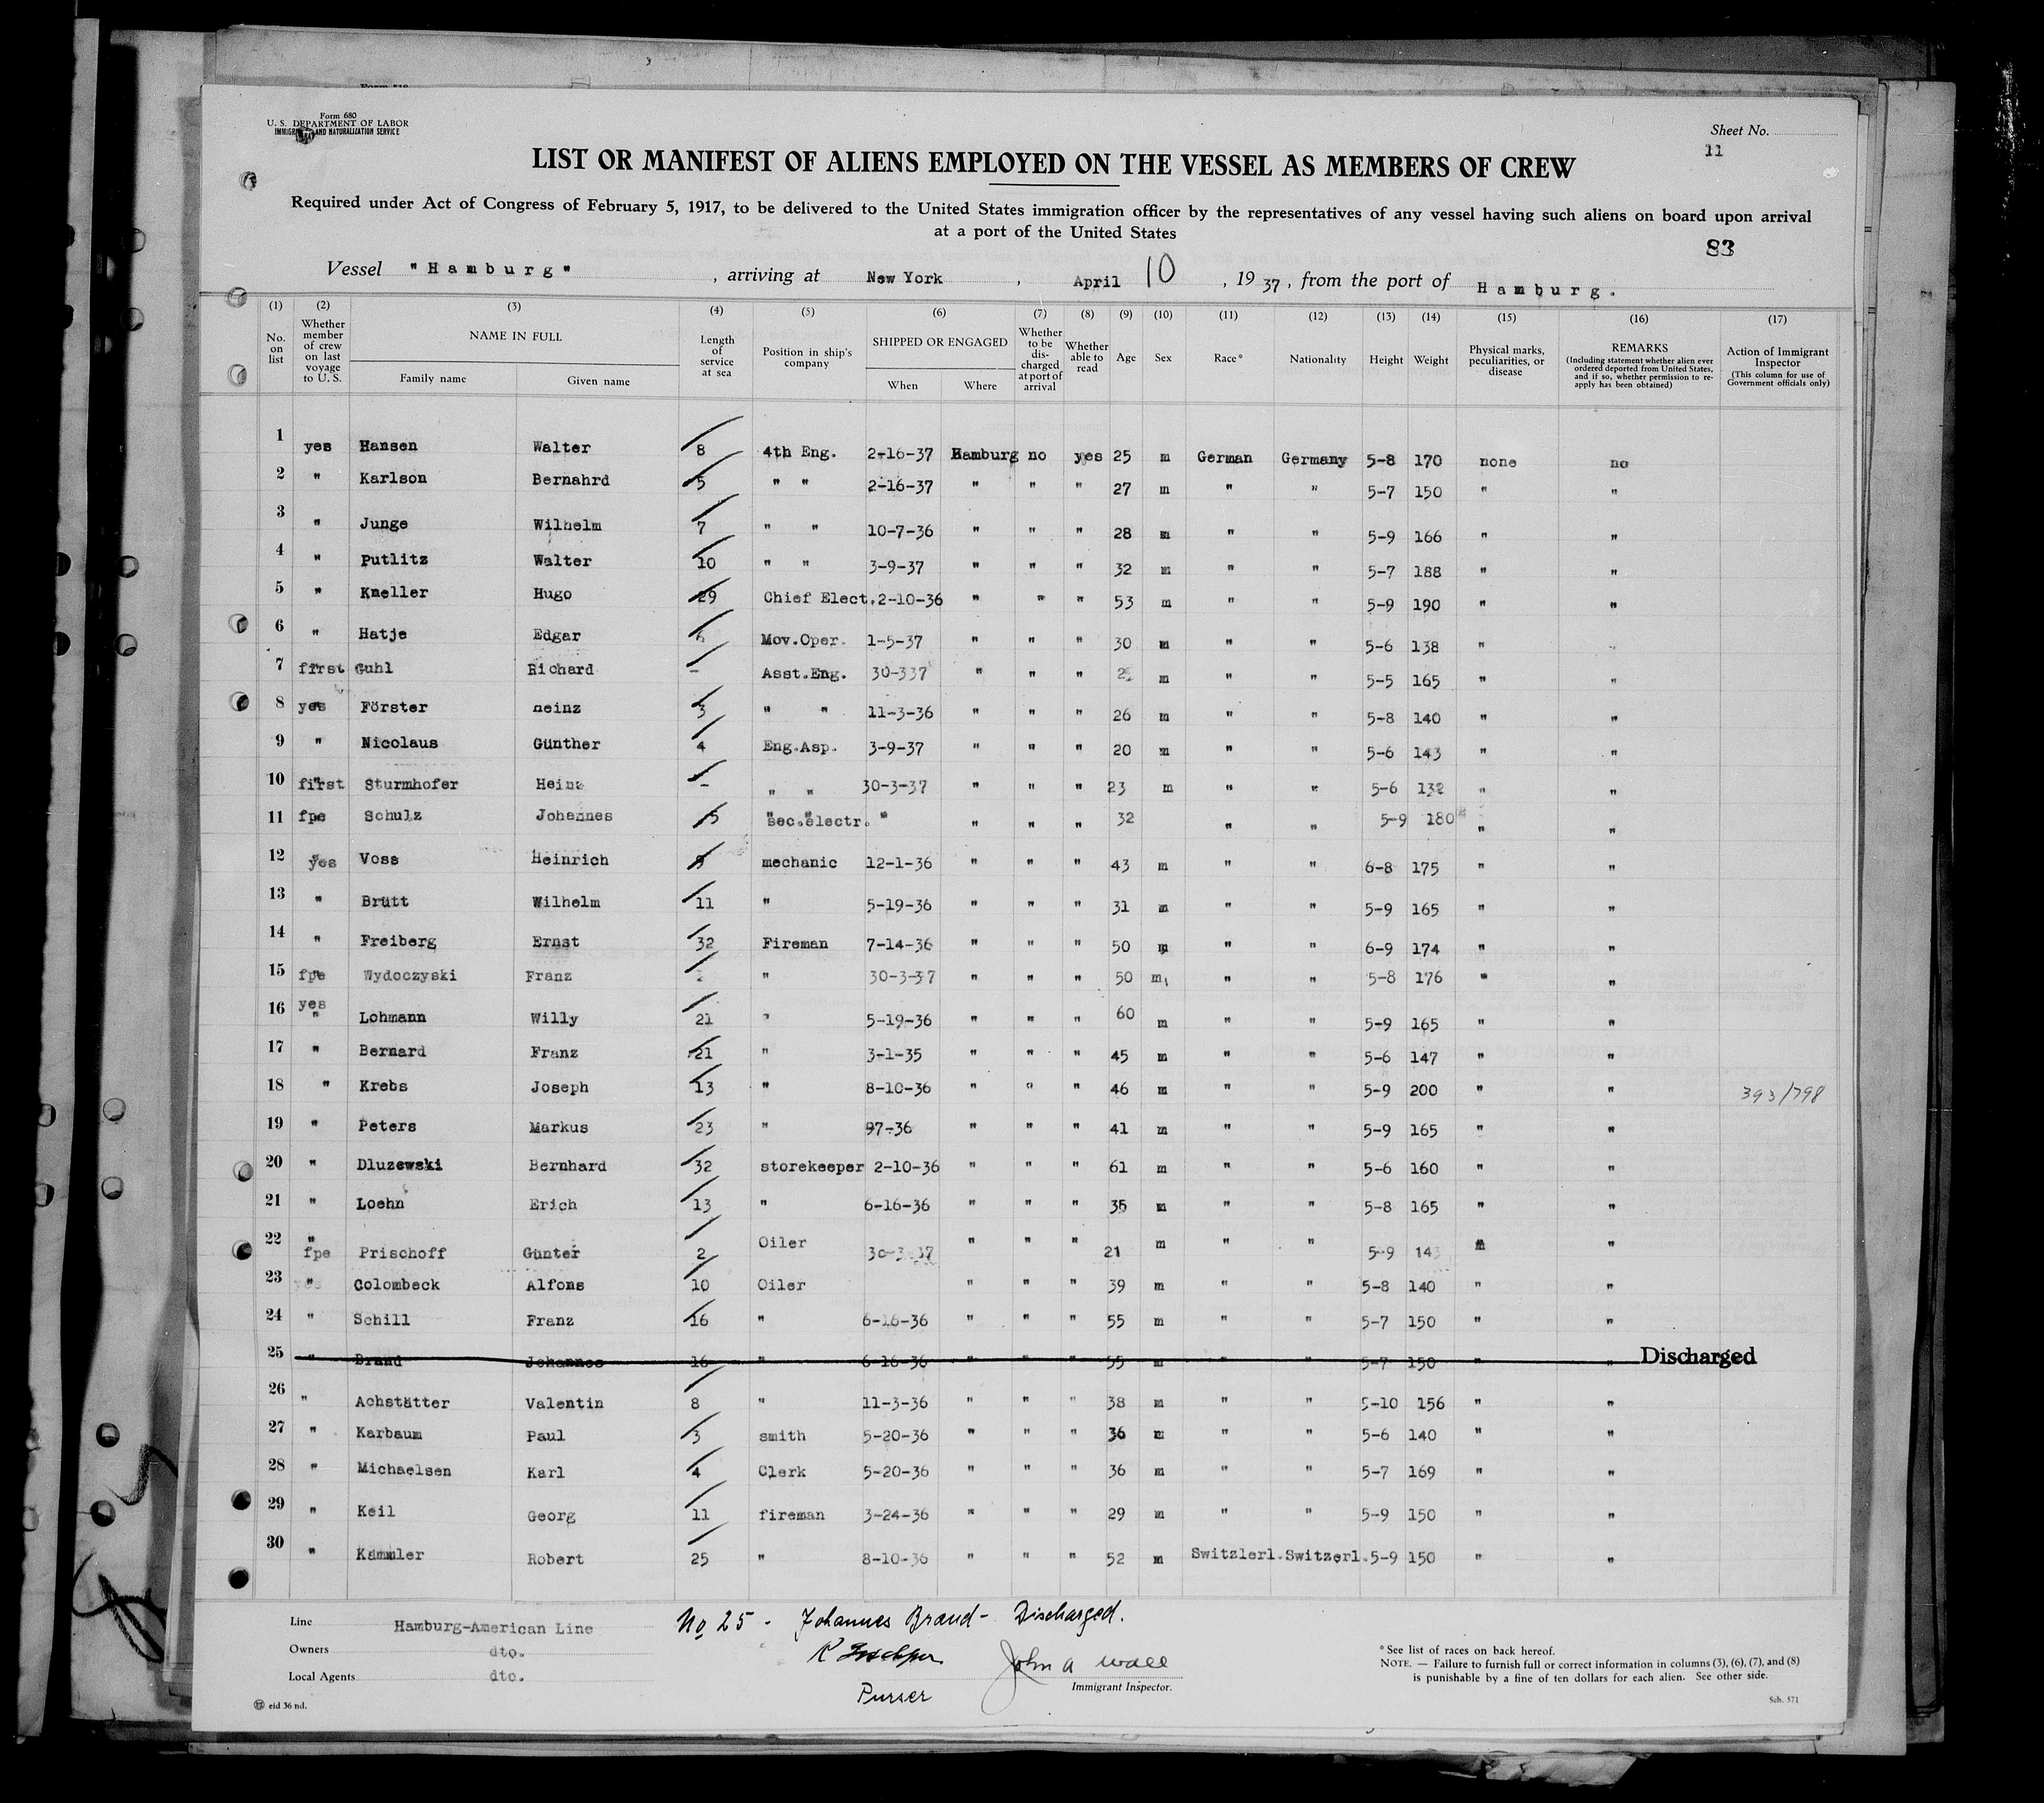 Form 680
U. S. DEPARTMENT OF LABOR
IMMIGRATION AND NATURALIZATION SERVICE
Sheet No.
11
LIST OR MANIFEST OF ALIENS EMPLOYED ON THE VESSEL AS MEMBERS OF CREW
Required under Act of Congress of February 5, 1917, to be delivered to the United States immigration officer by the representatives of any vessel having such aliens on board upon arrival
at a port of the United States
83
Vessel "Hamburg" , arriving at New York , April 10 , 19 37, from the port of Hamburg.
(1) (2) (3) (4) (5) (6) (7) (8) (9) (10) (11) (12) (13) (14) (15) (16) (17)
No. on list Whether member of crew on last voyage to U. S. NAME IN FULL Family name Given name Length of service at sea Position in ship's company SHIPPED OR ENGAGED When Where Whether to be discharged at port of arrival Whether able to read Age Sex Race* Nationality Height Weight Physical marks, peculiarities, or disease REMARKS (Including statement whether alien ever ordered deported from United States, and if so, whether permission to reapply has been obtained) Action of Immigrant Inspector (This column for use of Government officials only)
1 yes Hansen Walter 8 4th Eng. 2-16-37 Hamburg no yes 25 m German Germany 5-8 170 none no
2 " Karlson Bernahrd 5 " " 2-16-37 " " " 27 m " " 5-7 150 " "
3 " Junge Wilhelm 7 " " 10-7-36 " " " 28 m " " 5-9 166 " "
4 " Putlitz Walter 10 " " 3-9-37 " " " 32 m " " 5-7 188 " "
5 " Kneller Hugo 29 Chief Elect. 2-10-36 " " " 53 m " " 5-9 190 " "
6 " Hatje Edgar Mov.Oper. 1-5-37 " " " 30 m " " 5-6 138 " "
7 first Guhl Richard - Asst.Eng. 30-337 " " " m " " 5-5 165 " "
8 yes Förster heinz 3 " " 11-3-36 " " " 26 m " " 5-8 140 " "
9 " Nicolaus Günther 4 Eng.Asp. 3-9-37 " " " 20 m " " 5-6 143 " "
10 first Sturmhofer Heinz - " " 30-3-37 " " " 23 m " " 5-6 132 " "
11 fpe Schulz Johannes 5 sec.electr. " " " " 32 " " 5-9 180 " "
12 yes Voss Heinrich 9 mechanic 12-1-36 " " " 43 m " " 6-8 175 " "
13 " Brütt Wilhelm 11 " 5-19-36 " " " 31 m " " 5-9 165 " "
14 " Freiberg Ernst 32 Fireman 7-14-36 " " " 50 m " " 6-9 174 " "
15 fpe Wydoczyski Franz " 30-3-37 " " " 50 m " " 5-8 176 " "
16 yes " Lohmann Willy 21 " 5-19-36 " " " 60 m " " 5-9 165 " "
17 " Bernard Franz 21 " 3-1-35 " " " 45 m " " 5-6 147 " "
18 " Krebs Joseph 13 " 8-10-36 " " " 46 m " " 5-9 200 " " 393/798
19 " Peters Markus 23 " 97-36 " " " 41 m " " 5-9 165 " "
20 " Dluzewski Bernhard 32 storekeeper 2-10-36 " " " 61 m " " 5-6 160 " "
21 " Loehn Erich 13 " 6-16-36 " " " 35 m " " 5-8 165 " "
22 " fpe Prischoff Günter 2 Oiler 30-3-37 " " " 21 m " " 5-9 143 " "
23 yes Colombeck Alfons 10 Oiler " " " 39 m " " 5-8 140 " "
24 " Schill Franz 16 " 6-16-36 " " " 55 m " " 5-7 150 " "
25 " Brand Johannes 16 " 6-16-36 " " " 55 m " " 5-7 150 " " Discharged
26 " Achstätter Valentin 8 " 11-3-36 " " " 38 m " " 5-10 156 " "
27 " Karbaum Paul 3 smith 5-20-36 " " " 36 m " " 5-6 140 " "
28 " Michaelsen Karl 4 Clerk 5-20-36 " " " 36 m " " 5-7 169 " "
29 " Keil Georg 11 fireman 3-24-36 " " " 29 m " " 5-9 150 " "
30 " Kämmler Robert 25 " 8-10-36 " " " 52 m Switzlerl. Switzerl. 5-9 150 " "
Line Hamburg-American Line
Owners dto.
Local Agents dto.
eid 36 nd.
No 25 - Johannes Brand - Discharged.
Purser
John A Wall
Immigrant Inspector.
* See list of races on back hereof.
NOTE. — Failure to furnish full or correct information in columns (3), (6), (7), and (8)
is punishable by a fine of ten dollars for each alien. See other side.
Sch. 571